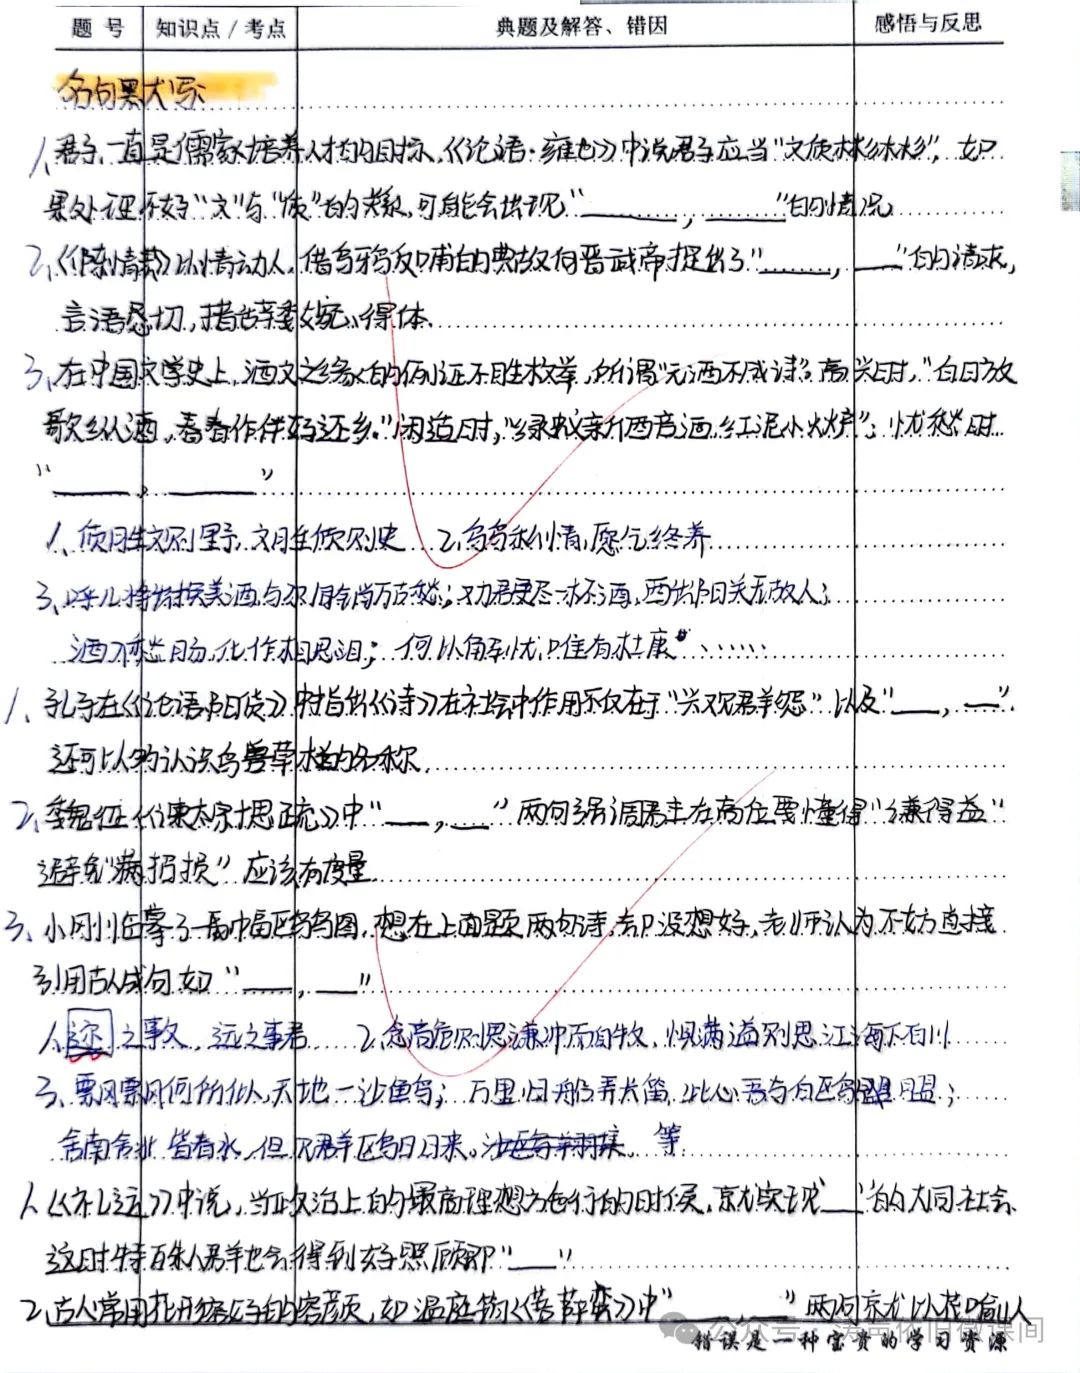 题 号 知识点/考点 典题及解答、错因 感悟与反思
名句默写:
1、君子一直是儒家培养人才的目标、《论语·雍也》中说君子应当“文质彬彬”,如
果处理不好“文”与“质”的关系,可能会出现“____,____”的情况
2、《陈情表》以情动人,借乌鸦反哺的典故向晋武帝提出了“____,____”的请求,
言语恳切,措辞委婉、得体.
3、在中国文学史上,酒文之缘的例证不胜枚举,所谓“无酒不成诗”.高兴时,“白日放
歌须纵酒,青春作伴好还乡.”闲适时,“绿蚁新醅酒,红泥小火炉”;忧愁时
“____,____”
1、质胜文则野,文胜质则史 2、乌鸟私情,愿乞终养
3、呼儿将出换美酒,与尔同销万古愁;劝君更尽一杯酒,西出阳关无故人;
酒入愁肠,化作相思泪;何以解忧,唯有杜康 ······
1、孔子在《论语·阳货》中指出《诗》在社会中作用不仅在于“兴观群怨”以及“____,____”.
还可以多认识鸟兽草木的名称.
2、魏征《谏太宗十思疏》中“____,____”两句强调君主在高位要懂得“谦得益”
避免“满招损”应该有度量.
3、小刚临摹了一幅中国鸥鸟图,想在上面题两句诗,却没想好,老师认为不妨直接
引用古人成句,如“____,____”
1、迩之事父,远之事君 2、念高危则思谦冲而自牧,惧满溢则思江海下百川
3、飘飘何所似,天地一沙鸥;万里归船弄长笛,此心吾与白鸥盟;
舍南舍北皆春水,但见群鸥日日来。 等
1、《礼运》中说,当政治上的最高理想为施行的时候,就实现“____”的大同社会.
这时特殊人群也会得到好照顾即“____”
2、古人常用花形容好的容颜,如温庭筠《菩萨蛮》中“________”两句就以花喻人
公众号·涛声依旧微课间
错误是一种宝贵的学习资源